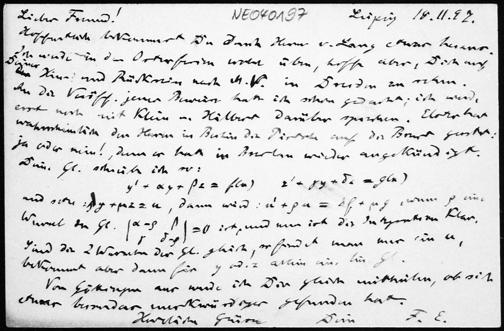 Lieber Freund! NE040197 Leipzig 18.II.97.
Hoffentlich bekommst Du Dank Herrn v. Lang etwas heraus.
Ich werde in den Osterferien wohl üben, hoffe aber, Dich auf
Deiner Hin- und Rückreise nach in Dresden zu sehen.
An die Veröff. jener Beweise habe ich schon gedacht; ich will
erst noch mit Klein u. Hilbert darüber sprechen.
wahrscheinlich den Herrn in Berlin die Pistole auf die Brust gesetzt:
ja oder nein!, denn er hat in wieder angekündigt.
Dein. Gl. schreibe ich so:
y' + αy + βz = f(x) z' + γy + δz = g(x)
und setze: λy + μz = u, dann wird: u' + ρu = λf + μg wenn ρ eine
Wurzel der Gl. |α-ρ γ| = 0 ist, und nun ist die Integration klar.
|β δ-ρ|
Sind die 2 Wurzeln der Gl. gleich, so findet man nur ein u,
bekommt aber dann für y od. z allein eine lin. Gl.
Von Göttingen aus werde ich Dir gleich mittheilen, ob sich
etwas besonders merkwürdiges gefunden hat.
Herzliche Grüsse Dein F. E.